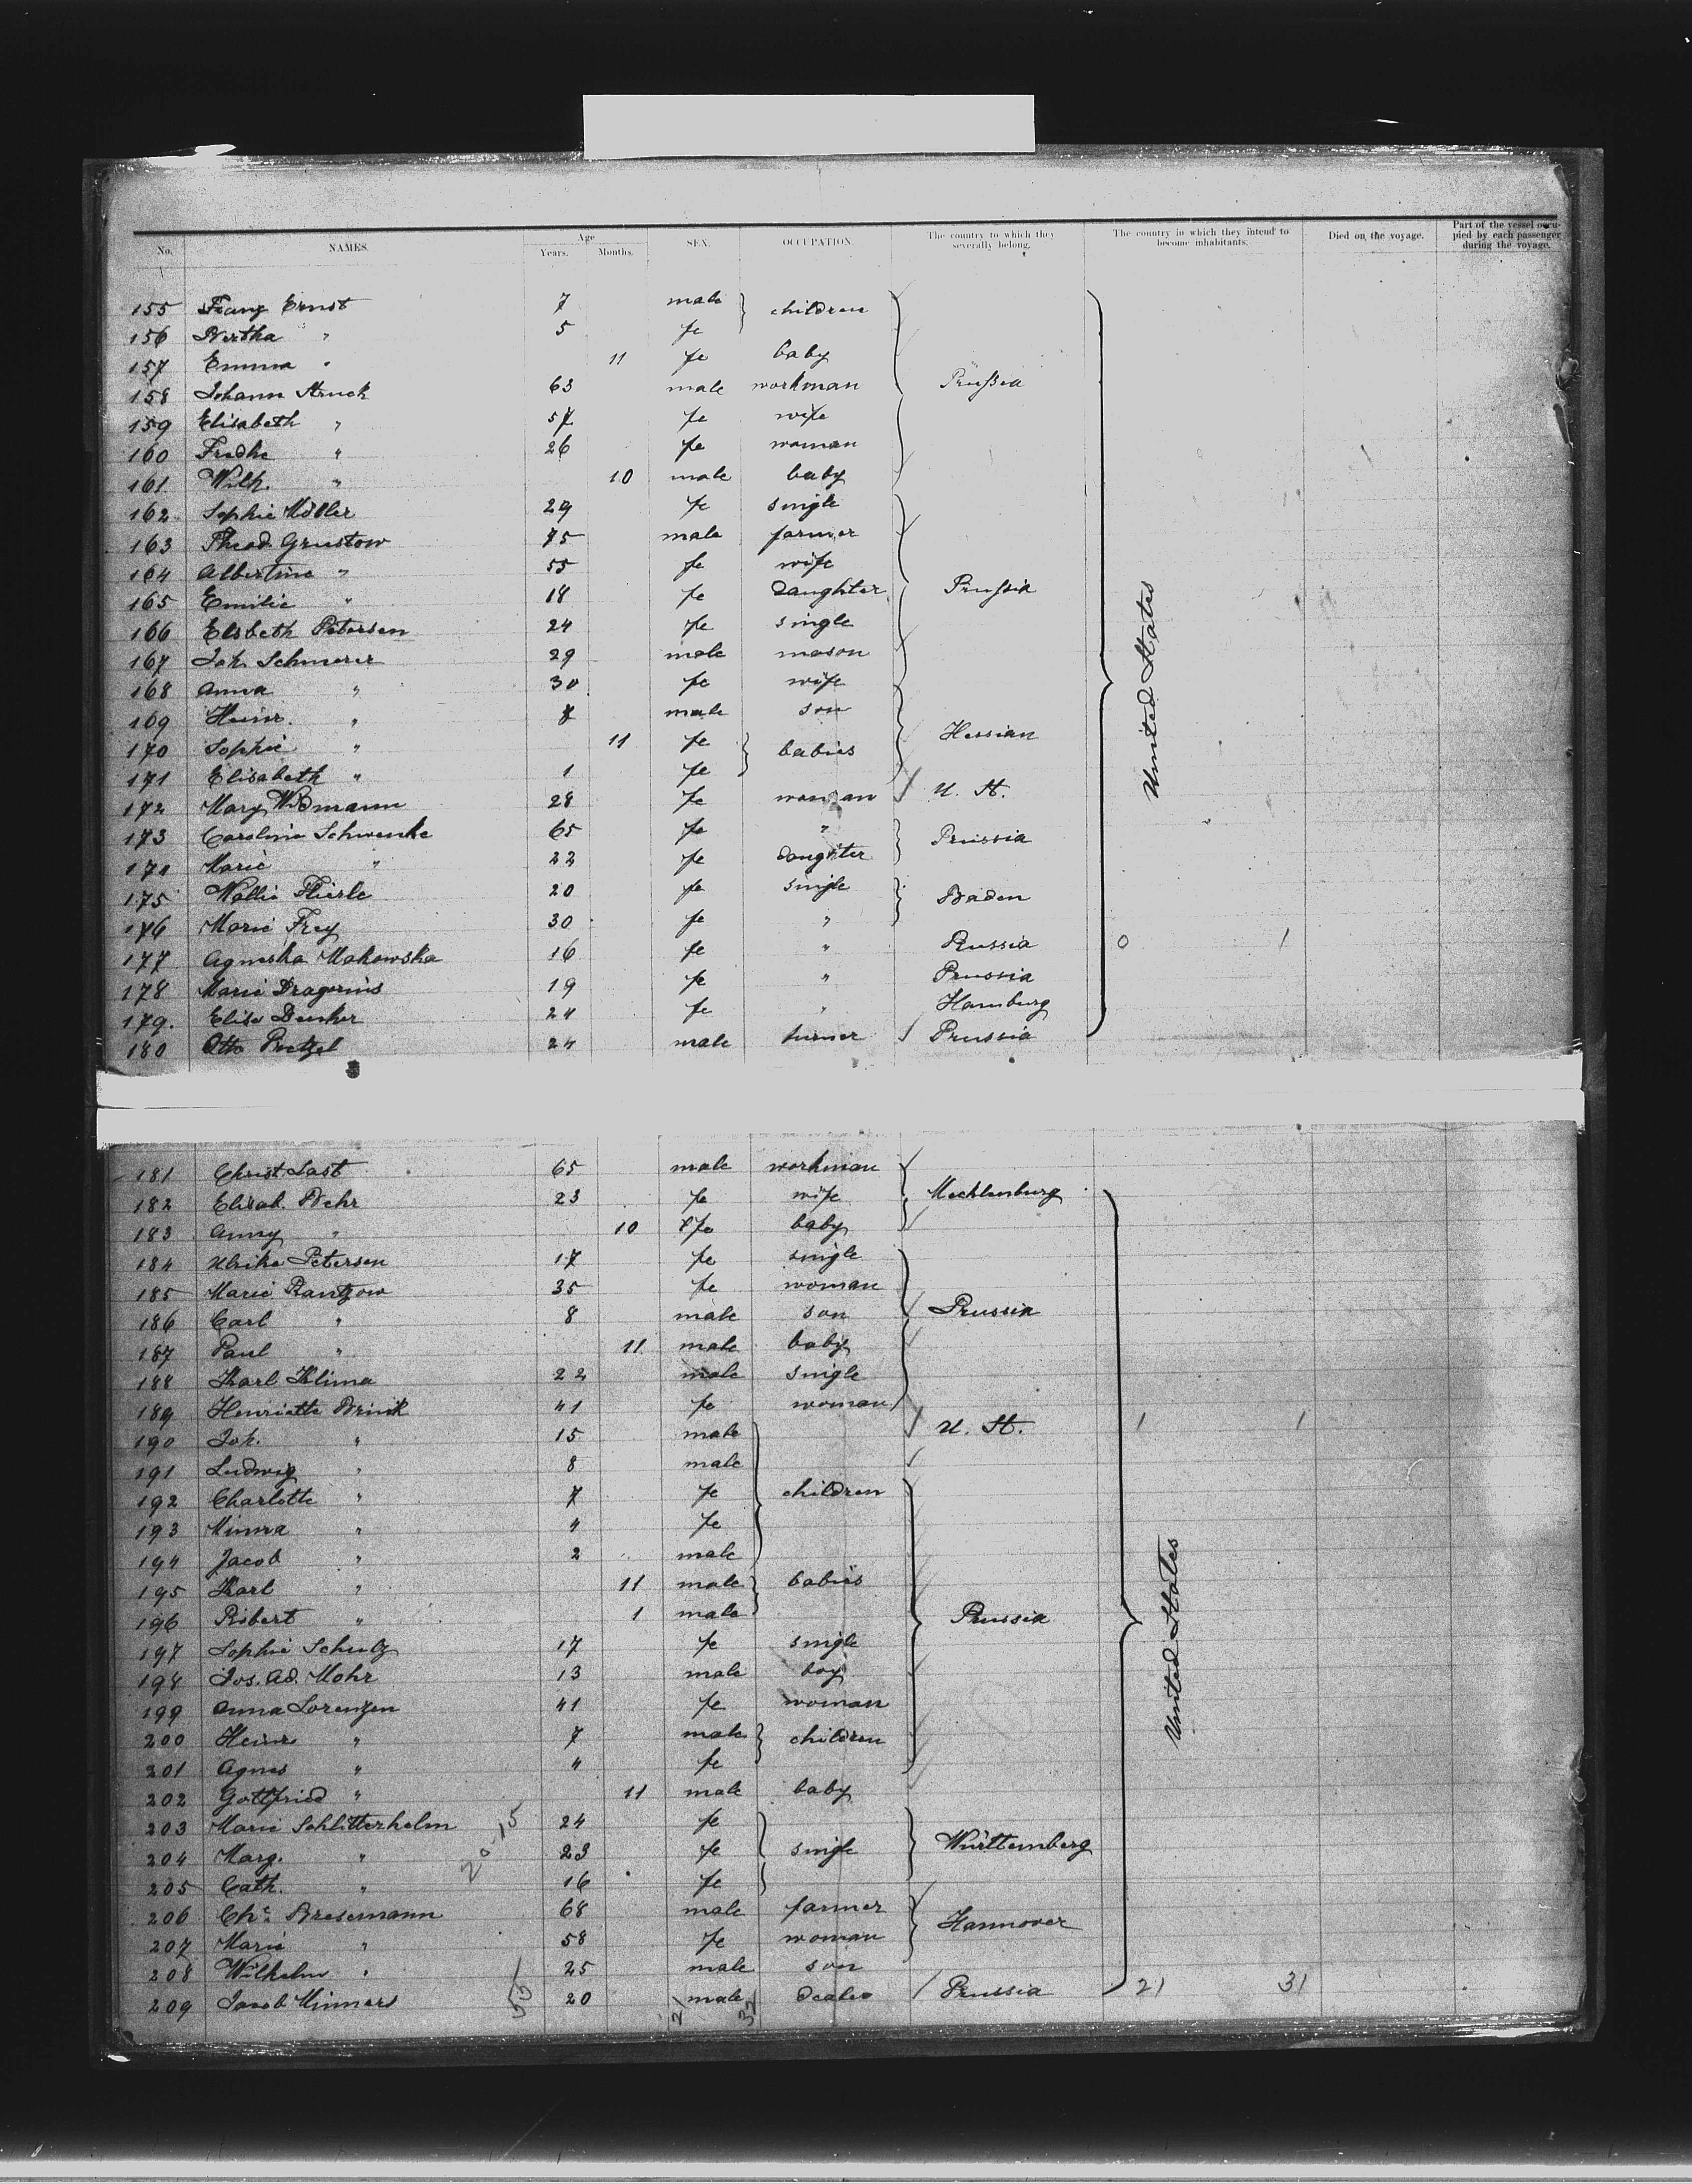 No. NAMES. Age Years. Months. SEX. OCCUPATION The country to which they severally belong. The country in which they intend to become inhabitants. Died on the voyage. Part of the vessel occupied by each passenger during the voyage.
155 Franz Ernst 7 male children
156 Bertha " 5 fe
157 Emma " 11 fe baby
158 Johann Struck 63 male workman Prußia
159 Elisabeth " 57 fe wife
160 Fredke " 26 fe woman
161 Wilh. " 10 male baby
162 Sophie Möller 29 fe single
163 Theod. Grustow 75 male farmer
164 Albertine " 55 fe wife
165 Emilie " 18 fe Daughter Prußia
166 Elsbeth Petersen 24 fe single
167 Joh. Schmerer 29 male mason
168 Anna " 30 fe wife
169 Heinr. " 7 male son
170 Sophie " 11 fe babies Hessian
171 Elisabeth " 1 fe
172 Mary Widmann 28 fe woman U. St.
173 Caroline Schwenke 65 fe " Prussia
174 Marie " 22 fe daughter
175 Wallie 20 fe single Baden
176 Marie Frey 30 fe "
177 Agneska Makowska 16 fe " Russia 0 1
178 Marie 19 fe " Prussia
179. Elise 24 fe " Hamburg
180 Otto Pretzel 24 male turner Prussia
United States
181 Christ. Last 65 male workman
182 Elisab. Behr 23 fe wife Mecklenburg
183 Anny " 10 fe baby
184 Ulrike Petersen 17 fe single
185 Marie Rantzow 35 fe woman
186 Carl " 8 male son Prussia
187 Paul " 11 male baby
188 Karl Klima 22 male single
189 Henriette Brink 41 fe woman
190 Joh. " 15 male U. St. 1 1
191 Ludwig " 8 male
192 Charlotte " 7 fe children
193 Minna " 4 fe
194 Jacob " 2 male
195 Karl " 11 male babies
196 Robert " 1 male Prussia
197 Sophie Schulz 17 fe single
198 Jos. Ad. Mohr 13 male boy
199 Anna Lorenzen 41 fe woman
200 Heinr. " 7 male children
201 Agnes " 4 fe
202 Gottfried " 11 male baby
203 Marie Schlitterhelm 24 fe
204 Marg. " 23 fe single Württemberg
205 Cath. " 16 fe
206 Chr. Bresemann 68 male farmer Hannover
207 Marie " 58 fe woman
208 Wilhelm " 25 male son
209 Jacob Minners 20 male Prussia 21 31
United States
20 15
55